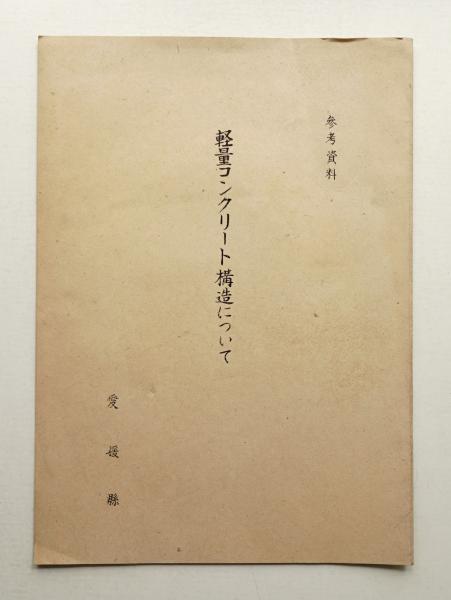 参考資料
軽量コンクリート構造について
愛媛縣